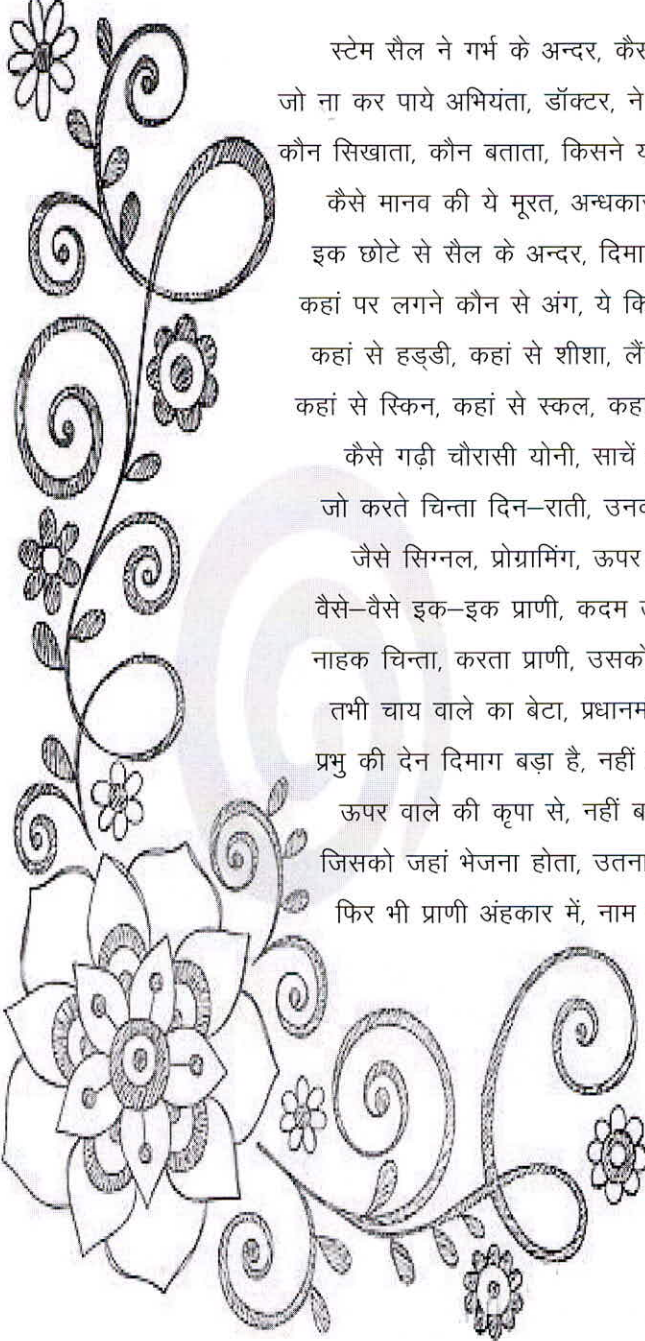 स्टेम सैल ने गर्भ के अन्दर, कैस
जो ना कर पाये अभियंता, डॉक्टर, ने
कौन सिखाता, कौन बताता, किसने य
कैसे मानव की ये मूरत, अन्धकार
इक छोटे से सैल के अन्दर, दिमा
कहां पर लगने कौन से अंग, ये कि
कहां से हड्डी, कहां से शीशा, लैं
कहां से स्किन, कहां से स्कल, कह
कैसे गढ़ी चौरासी योनी, साचें
जो करते चिन्ता दिन–राती, उनक
जैसे सिग्नल, प्रोग्रामिंग, ऊपर
वैसे–वैसे इक–इक प्राणी, कदम उ
नाहक चिन्ता, करता प्राणी, उसको
तभी चाय वाले का बेटा, प्रधानम
प्रभु की देन दिमाग बड़ा है, नहीं
ऊपर वाले की कृपा से, नहीं ब
जिसको जहां भेजना होता, उतना
फिर भी प्राणी अंहकार में, नाम